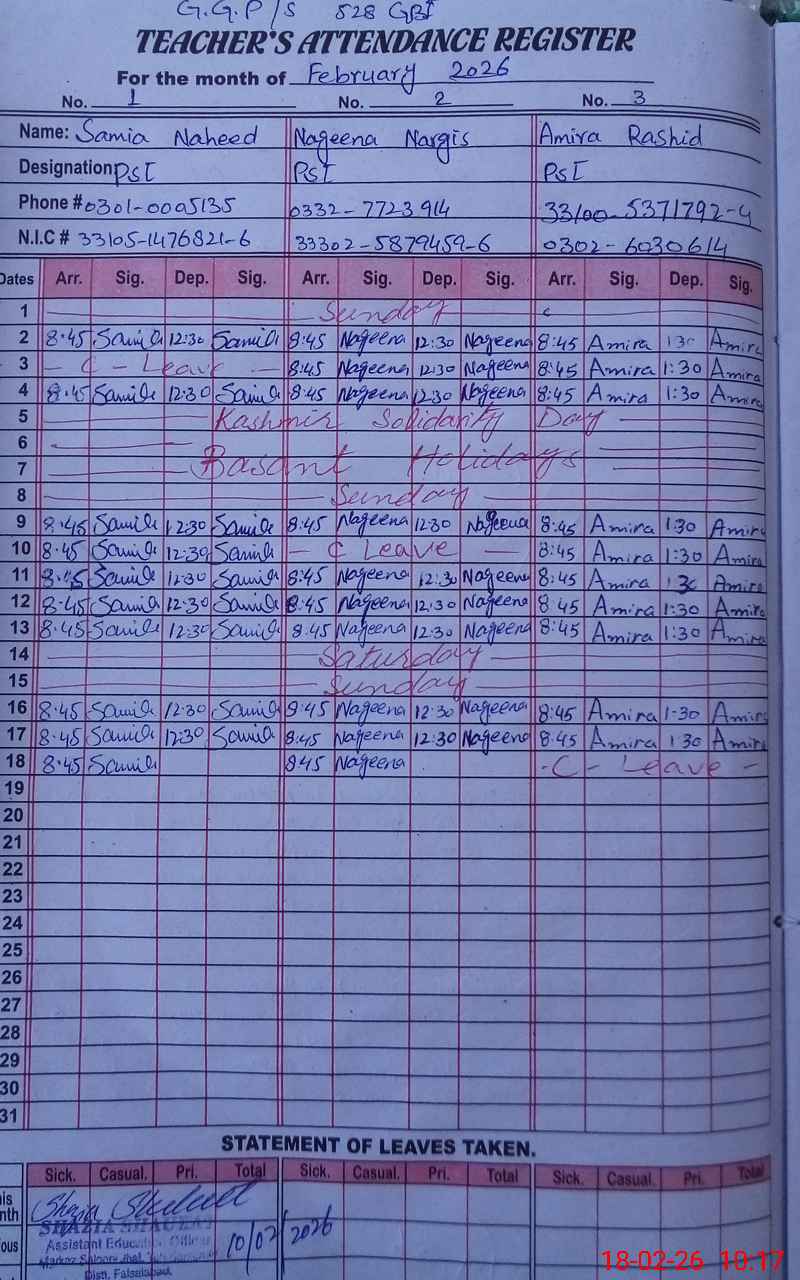 G.G.P/S 528 GBI
TEACHER'S ATTENDANCE REGISTER
For the month of February 2026
No. 1 No. 2 No. 3
Name: Samia Naheed Nageena Nargis Amira Rashid
Designation PST PST PST
Phone # 0301-0005135 0332-7723914 33100-5371792-4
N.I.C # 33105-1476821-6 33302-5879459-6 0302-6030614
Dates Arr. Sig. Dep. Sig. Arr. Sig. Dep. Sig. Arr. Sig. Dep. Sig.
1 Sunday
2 8:45 Samia 12:30 Samia 8:45 Nageena 12:30 Nageena 8:45 Amira 1 30 Amira
3 - C - Leave - 8:45 Nageena 12:30 Nageena 8:45 Amira 1:30 Amira
4 8:45 Samia 12:30 Samia 8:45 Nageena 12:30 Nageena 8:45 Amira 1:30 Amira
5 Kashmir Solidarity Day
6
7 Basant Holidays
8 Sunday
9 8:45 Samia 12:30 Samia 8:45 Nageena 12:30 Nageena 8:45 Amira 1:30 Amira
10 8:45 Samia 12:30 Samia - C Leave - 8:45 Amira 1:30 Amira
11 8:45 Samia 12:30 Samia 8:45 Nageena 12:30 Nageena 8:45 Amira 1 30 Amira
12 8:45 Samia 12:30 Samia 8:45 Nageena 12:30 Nageena 8:45 Amira 1:30 Amira
13 8:45 Samia 12:30 Samia 8:45 Nageena 12:30 Nageena 8:45 Amira 1:30 Amira
14 Saturday
15 Sunday
16 8:45 Samia 12:30 Samia 8:45 Nageena 12:30 Nageena 8:45 Amira 1:30 Amira
17 8:45 Samia 12:30 Samia 8:45 Nageena 12:30 Nageena 8:45 Amira 1 30 Amira
18 8:45 Samia 8 45 Nageena - C - Leave -
19
20
21
22
23
24
25
26
27
28
29
30
31
STATEMENT OF LEAVES TAKEN.
Sick. Casual. Pri. Total Sick. Casual. Pri. Total Sick. Casual. Pri. Total
Shazia
SHAZIA SHAUKAT
Assistant Education Officer
10/02/2026
Distt. Faisalabad
18-02-26 10:17